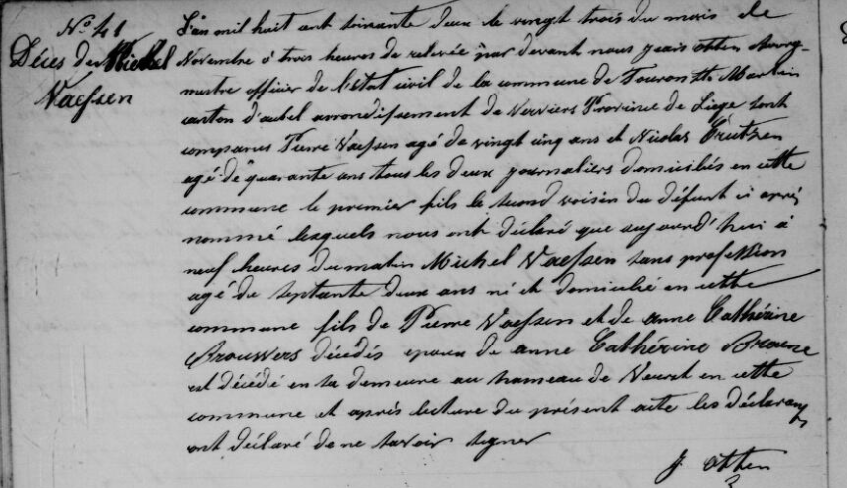 N° 41
Décès de Michel
Vaessen
L'an mil huit cent soixante deux le vingt trois du mois de
Novembre à trois heures de relevée par devant nous otten bourg-
mestre officier de l'état civil de la commune de Fouron St Martin
canton d'aubel arrondissement de Verviers Province de Liege sont
comparus Pierre Vaessen agé de vingt cinq ans et Nicolas Crutzen
agé de quarante ans tous les deux journaliers domiciliés en cette
commune le premier fils le second voisin du défunt ci après
nommé lesquels nous ont déclaré que aujourd'hui à
neuf heures du matin Michel Vaessen sans profession
agé de septante deux ans né et domicilié en cette
commune fils de Pierre Vaessen et de anne Cathérine
Brouwers décédés epoux de anne Cathérine
est décédé en sa demeure au hameau de Veurst en cette
commune et après lecture du présent acte les déclarants
ont déclaré de ne savoir signer
J otten